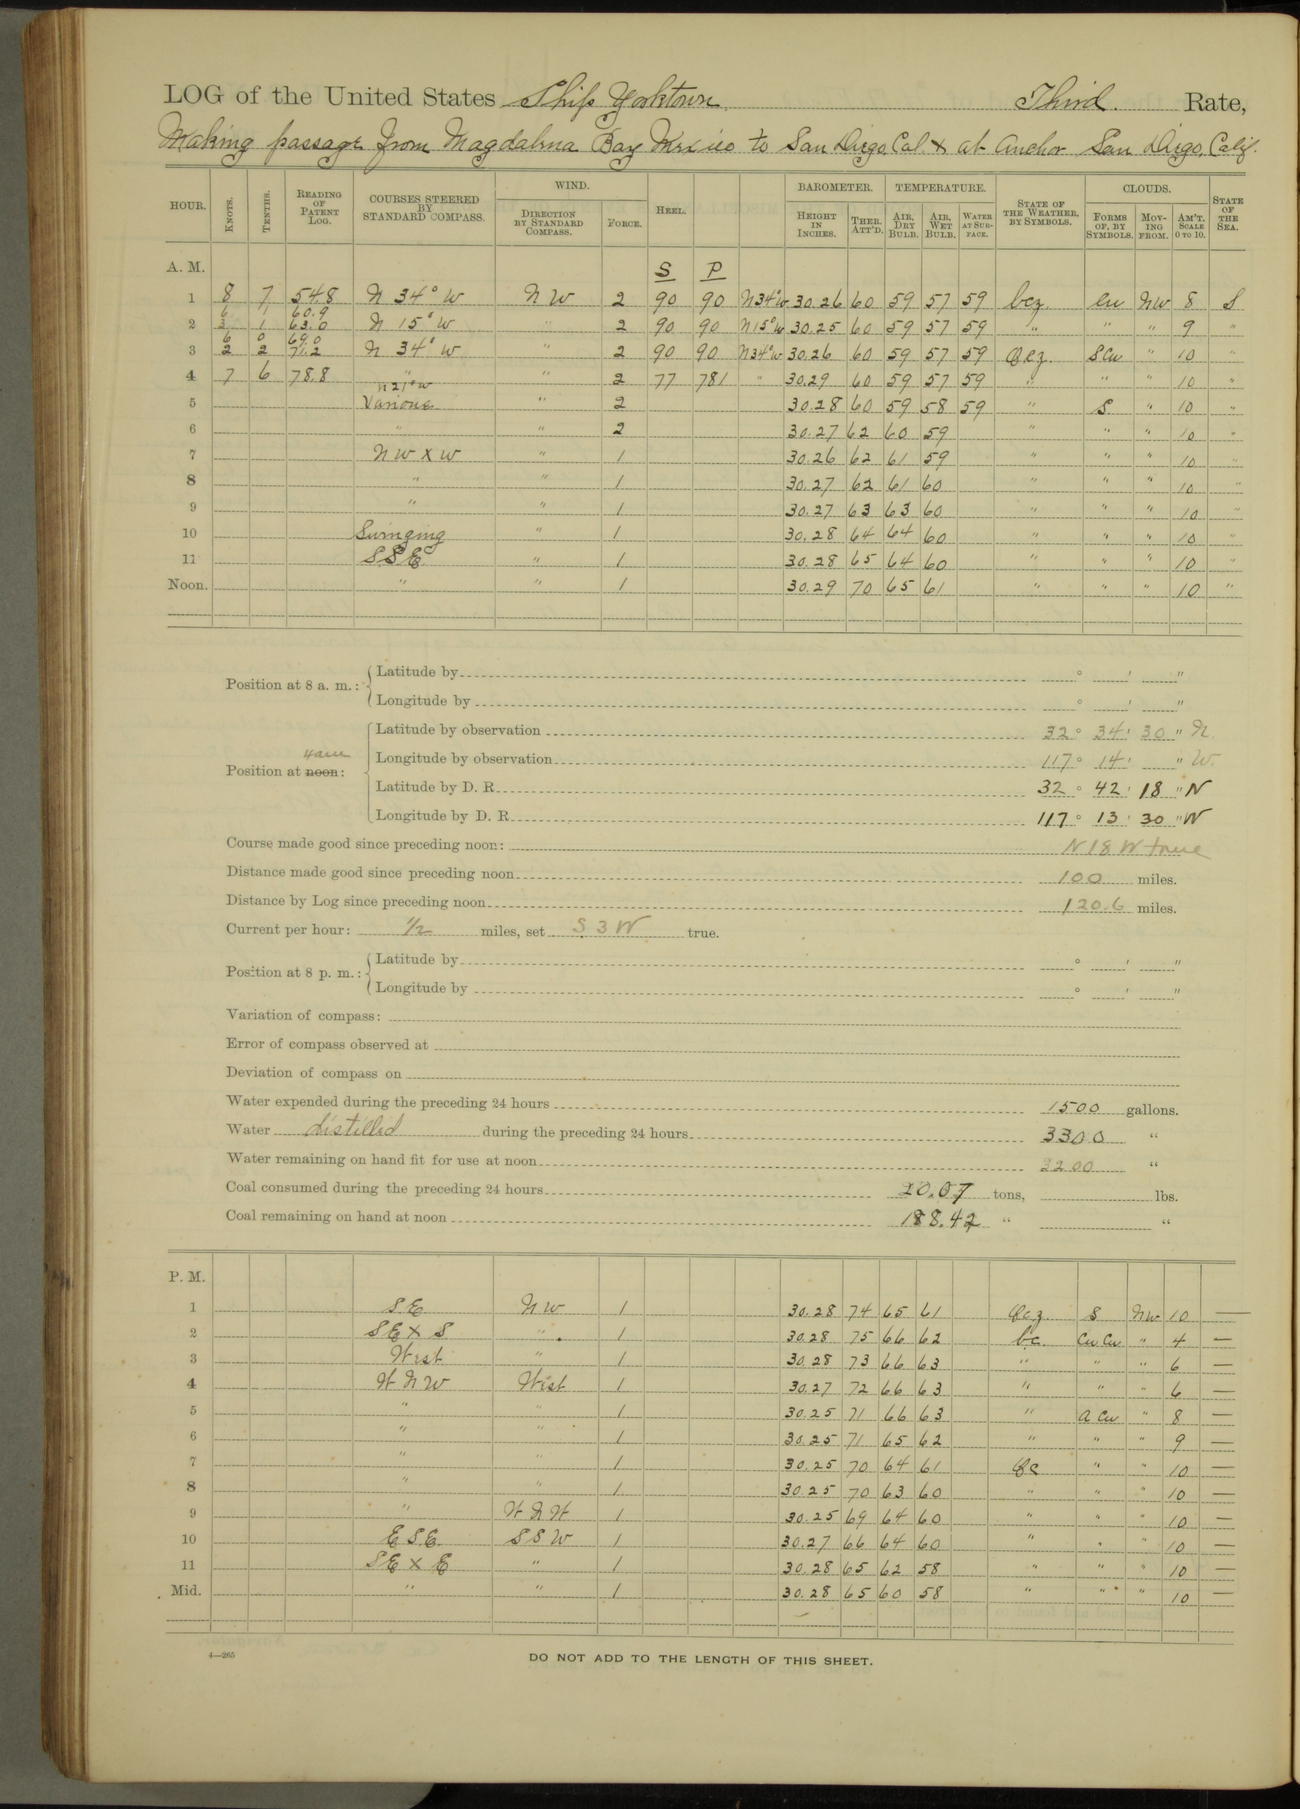 LOG of the United States Ship Yorktown Third Rate,
Making passage from Magdalena Bay Mexico to San Diego, Cal. & at Anchor San Diego, Calif.
HOUR. KNOTS. TENTHS. READING OF PATENT LOG. COURSES STEERED BY STANDARD COMPASS. WIND. DIRECTION BY STANDARD COMPASS. FORCE. HEEL. BAROMETER. HEIGHT IN INCHES. THER. ATT'D. TEMPERATURE. AIR, DRY BULB. AIR, WET BULB. WATER AT SURFACE. STATE OF THE WEATHER, BY SYMBOLS. CLOUDS. FORMS OF, BY SYMBOLS. MOVING FROM. AM'T. SCALE 0 TO 10. STATE OF THE SEA.
A. M. S P
1 8 7 54.8 N 34° W NW 2 90 90 N34°W 30.26 60 59 57 59 bcz cu NW 8 S
6 1 60.9
2 3 1 63.0 N 15° W " 2 90 90 N15°W 30.25 60 59 57 59 " " " 9 "
6 0 69.0
3 2 2 71.2 N 34° W " 2 90 90 N34°W 30.26 60 59 57 59 ocz S cu " 10 "
4 7 6 78.8 " " 2 77 781 " 30.29 60 59 57 59 " " " 10 "
N 21° W
5 Various " 2 30.28 60 59 58 59 " S " 10 "
6 " " 2 30.27 62 60 59 " " " 10 "
7 NW x W " 1 30.26 62 61 59 " " " 10 "
8 " " 1 30.27 62 61 60 " " " 10 "
9 " " 1 30.27 63 63 60 " " " 10 "
10 Swinging " 1 30.28 64 64 60 " " " 10 "
11 SSE " 1 30.28 65 64 60 " " " 10 "
Noon. " " 1 30.29 70 65 61 " " " 10 "
Position at 8 a. m.: Latitude by ° ' "
Longitude by ° ' "
Position at noon: 4am Latitude by observation 32° 34' 30" N.
Longitude by observation 117° 14' " W.
Latitude by D. R. 32° 42' 18" N
Longitude by D. R. 117° 13' 30" W
Course made good since preceding noon: N 18 W true
Distance made good since preceding noon 100 miles.
Distance by Log since preceding noon 120.6 miles.
Current per hour: 1/2 miles, set S 3 W true.
Position at 8 p. m.: Latitude by ° ' "
Longitude by ° ' "
Variation of compass:
Error of compass observed at
Deviation of compass on
Water expended during the preceding 24 hours 1500 gallons.
Water distilled during the preceding 24 hours 3300 "
Water remaining on hand fit for use at noon 3200 "
Coal consumed during the preceding 24 hours 10.07 tons, lbs.
Coal remaining on hand at noon 188.42 " "
P. M.
1 SE NW 1 30.28 74 65 61 ocz S NW 10 —
2 SE x S " 1 30.28 75 66 62 bc. Cu Cu " 4 —
3 West " 1 30.28 73 66 63 " " " 6 —
4 WNW West 1 30.27 72 66 63 " " " 6 —
5 " " 1 30.25 71 66 63 " A Cu " 8 —
6 " " 1 30.25 71 65 62 " " " 9 —
7 " " 1 30.25 70 64 61 oc " " 10 —
8 " " 1 30.25 70 63 60 " " " 10 —
9 " WNW 1 30.25 69 64 60 " " " 10 —
10 ESE SSW 1 30.27 66 64 60 " " " 10 —
11 SE x E " 1 30.28 65 62 58 " " " 10 —
Mid. " " 1 30.28 65 60 58 " " " 10 —
4—265 DO NOT ADD TO THE LENGTH OF THIS SHEET.